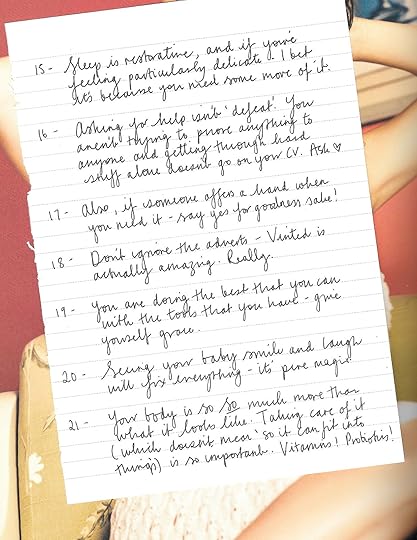 15 - Sleep is restorative, and if you're
feeling particularly delicate - I bet
it's because you need some more of it.
16 - Asking for help isn't 'defeat'. You
aren't trying to prove anything to
anyone and getting through hard
stuff alone doesn't go on your CV. Ask ♡
17 - Also, if someone offers a hand when
you need it - say yes for goodness sake!
18 - Don't ignore the adverts - Vinted is
actually amazing. Really.
19 - You are doing the best that you can
with the tools that you have - give
yourself grace.
20 - Seeing your baby smile and laugh
will fix everything - it's pure magic
21 - Your body is so so much more than
what it looks like. Taking care of it
(which doesn't mean 'so it can fit into
things) is so important. Vitamins! Probiotics!